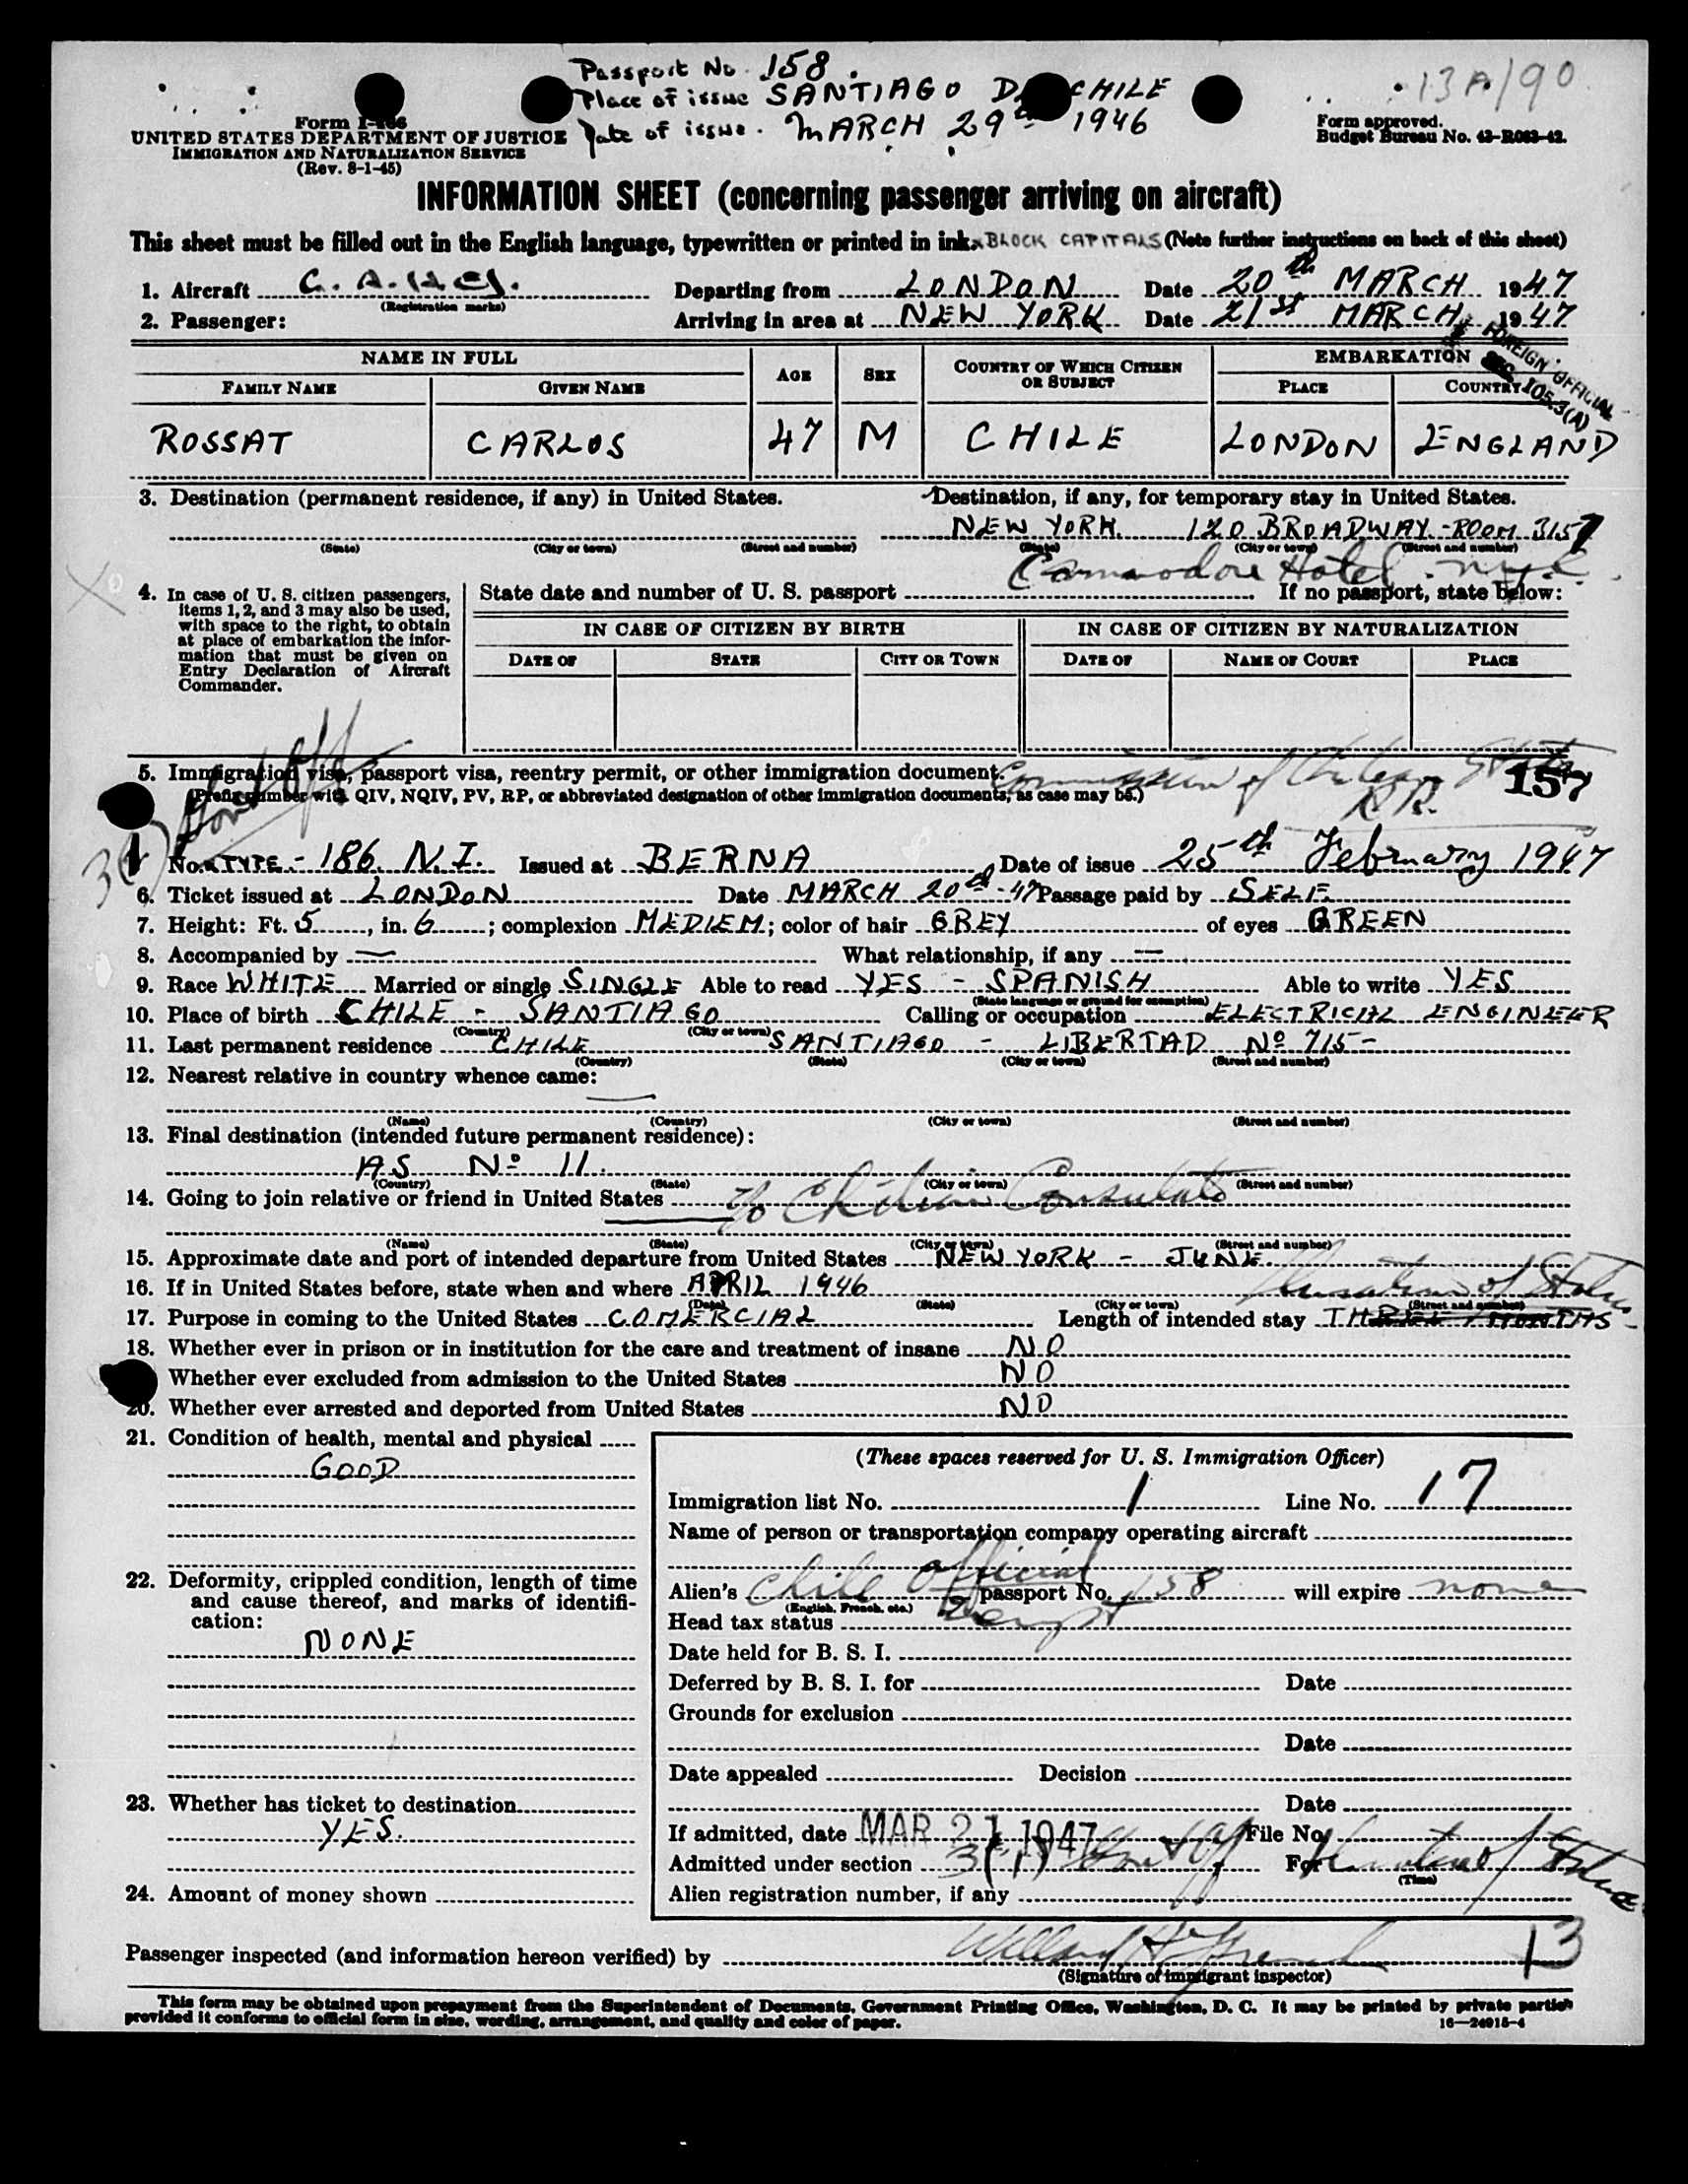 Passport No. 158.
Place of issue SANTIAGO D CHILE
Date of issue. MARCH 29th 1946
13A/90
Form
UNITED STATES DEPARTMENT OF JUSTICE
IMMIGRATION AND NATURALIZATION SERVICE
(Rev. 8-1-45)
Form approved.
Budget Bureau No. 43-R083-42.
INFORMATION SHEET (concerning passenger arriving on aircraft)
This sheet must be filled out in the English language, typewritten or printed in ink. BLOCK CAPITALS (Note further instructions on back of this sheet)
1. Aircraft Departing from LONDON Date 20th MARCH 1947
(Registration marks)
2. Passenger: Arriving in area at NEW YORK Date 21st MARCH 1947
FOREIGN OFFICIAL
SEC. 105.3(A)
NAME IN FULL AGE SEX COUNTRY OF WHICH CITIZEN OR SUBJECT EMBARKATION
FAMILY NAME GIVEN NAME PLACE COUNTRY
ROSSAT CARLOS 47 M CHILE LONDON ENGLAND
3. Destination (permanent residence, if any) in United States. Destination, if any, for temporary stay in United States.
NEW YORK. 120 BROADWAY - ROOM 3157
(State) (City or town) (Street and number) (State) (City or town) (Street and number)
Commodore Hotel. N.Y.C.
4. In case of U. S. citizen passengers, items 1, 2, and 3 may also be used, with space to the right, to obtain at place of embarkation the information that must be given on Entry Declaration of Aircraft Commander.
State date and number of U. S. passport If no passport, state below:
IN CASE OF CITIZEN BY BIRTH IN CASE OF CITIZEN BY NATURALIZATION
DATE OF STATE CITY OR TOWN DATE OF NAME OF COURT PLACE
5. Immigration visa, passport visa, reentry permit, or other immigration document.
(Prefix number with QIV, NQIV, PV, RP, or abbreviated designation of other immigration documents, as case may be.)
157
R.R.
No. TYPE - 186. N.I. Issued at BERNA Date of issue 25th February 1947
6. Ticket issued at LONDON Date MARCH 20th -47 Passage paid by SELF.
7. Height: Ft. 5, in. 6; complexion MEDIEM; color of hair GREY of eyes GREEN
8. Accompanied by — What relationship, if any —
9. Race WHITE Married or single SINGLE Able to read YES - SPANISH Able to write YES
(State language or ground for exemption)
10. Place of birth CHILE - SANTIAGO Calling or occupation ELECTRICAL ENGINEER
(Country) (City or town)
11. Last permanent residence CHILE SANTIAGO - LIBERTAD Nº 715-
(Country) (State) (City or town) (Street and number)
12. Nearest relative in country whence came:
(Name) (Country) (City or town) (Street and number)
13. Final destination (intended future permanent residence):
AS Nº 11.
(Country) (State) (City or town) (Street and number)
14. Going to join relative or friend in United States c/o Chilean Consulate
(Name) (State) (City or town) (Street and number)
15. Approximate date and port of intended departure from United States NEW YORK - JUNE.
16. If in United States before, state when and where APRIL 1946
(Date) (State) (City or town) (Street and number)
17. Purpose in coming to the United States COMERCIAL Length of intended stay THREE MONTHS -
Duration of Status
18. Whether ever in prison or in institution for the care and treatment of insane NO
Whether ever excluded from admission to the United States NO
20. Whether ever arrested and deported from United States NO
21. Condition of health, mental and physical
GOOD
22. Deformity, crippled condition, length of time and cause thereof, and marks of identification:
NONE
23. Whether has ticket to destination
YES.
24. Amount of money shown
(These spaces reserved for U. S. Immigration Officer)
Immigration list No. 1 Line No. 17
Name of person or transportation company operating aircraft
Official
Alien's Chile passport No. 158 will expire none
(English, French, etc.)
Head tax status Exempt
Date held for B. S. I.
Deferred by B. S. I. for Date
Grounds for exclusion
Date
Date appealed Decision
Date
If admitted, date MAR 21 1947 File No.
Admitted under section 3(1) Govt Off For Duration of Status
(Time)
Alien registration number, if any
Passenger inspected (and information hereon verified) by Willard H. French
13
(Signature of immigrant inspector)
This form may be obtained upon prepayment from the Superintendent of Documents, Government Printing Office, Washington, D. C. It may be printed by private parties
provided it conforms to official form in size, wording, arrangement, and quality and color of paper.
16—24918-4